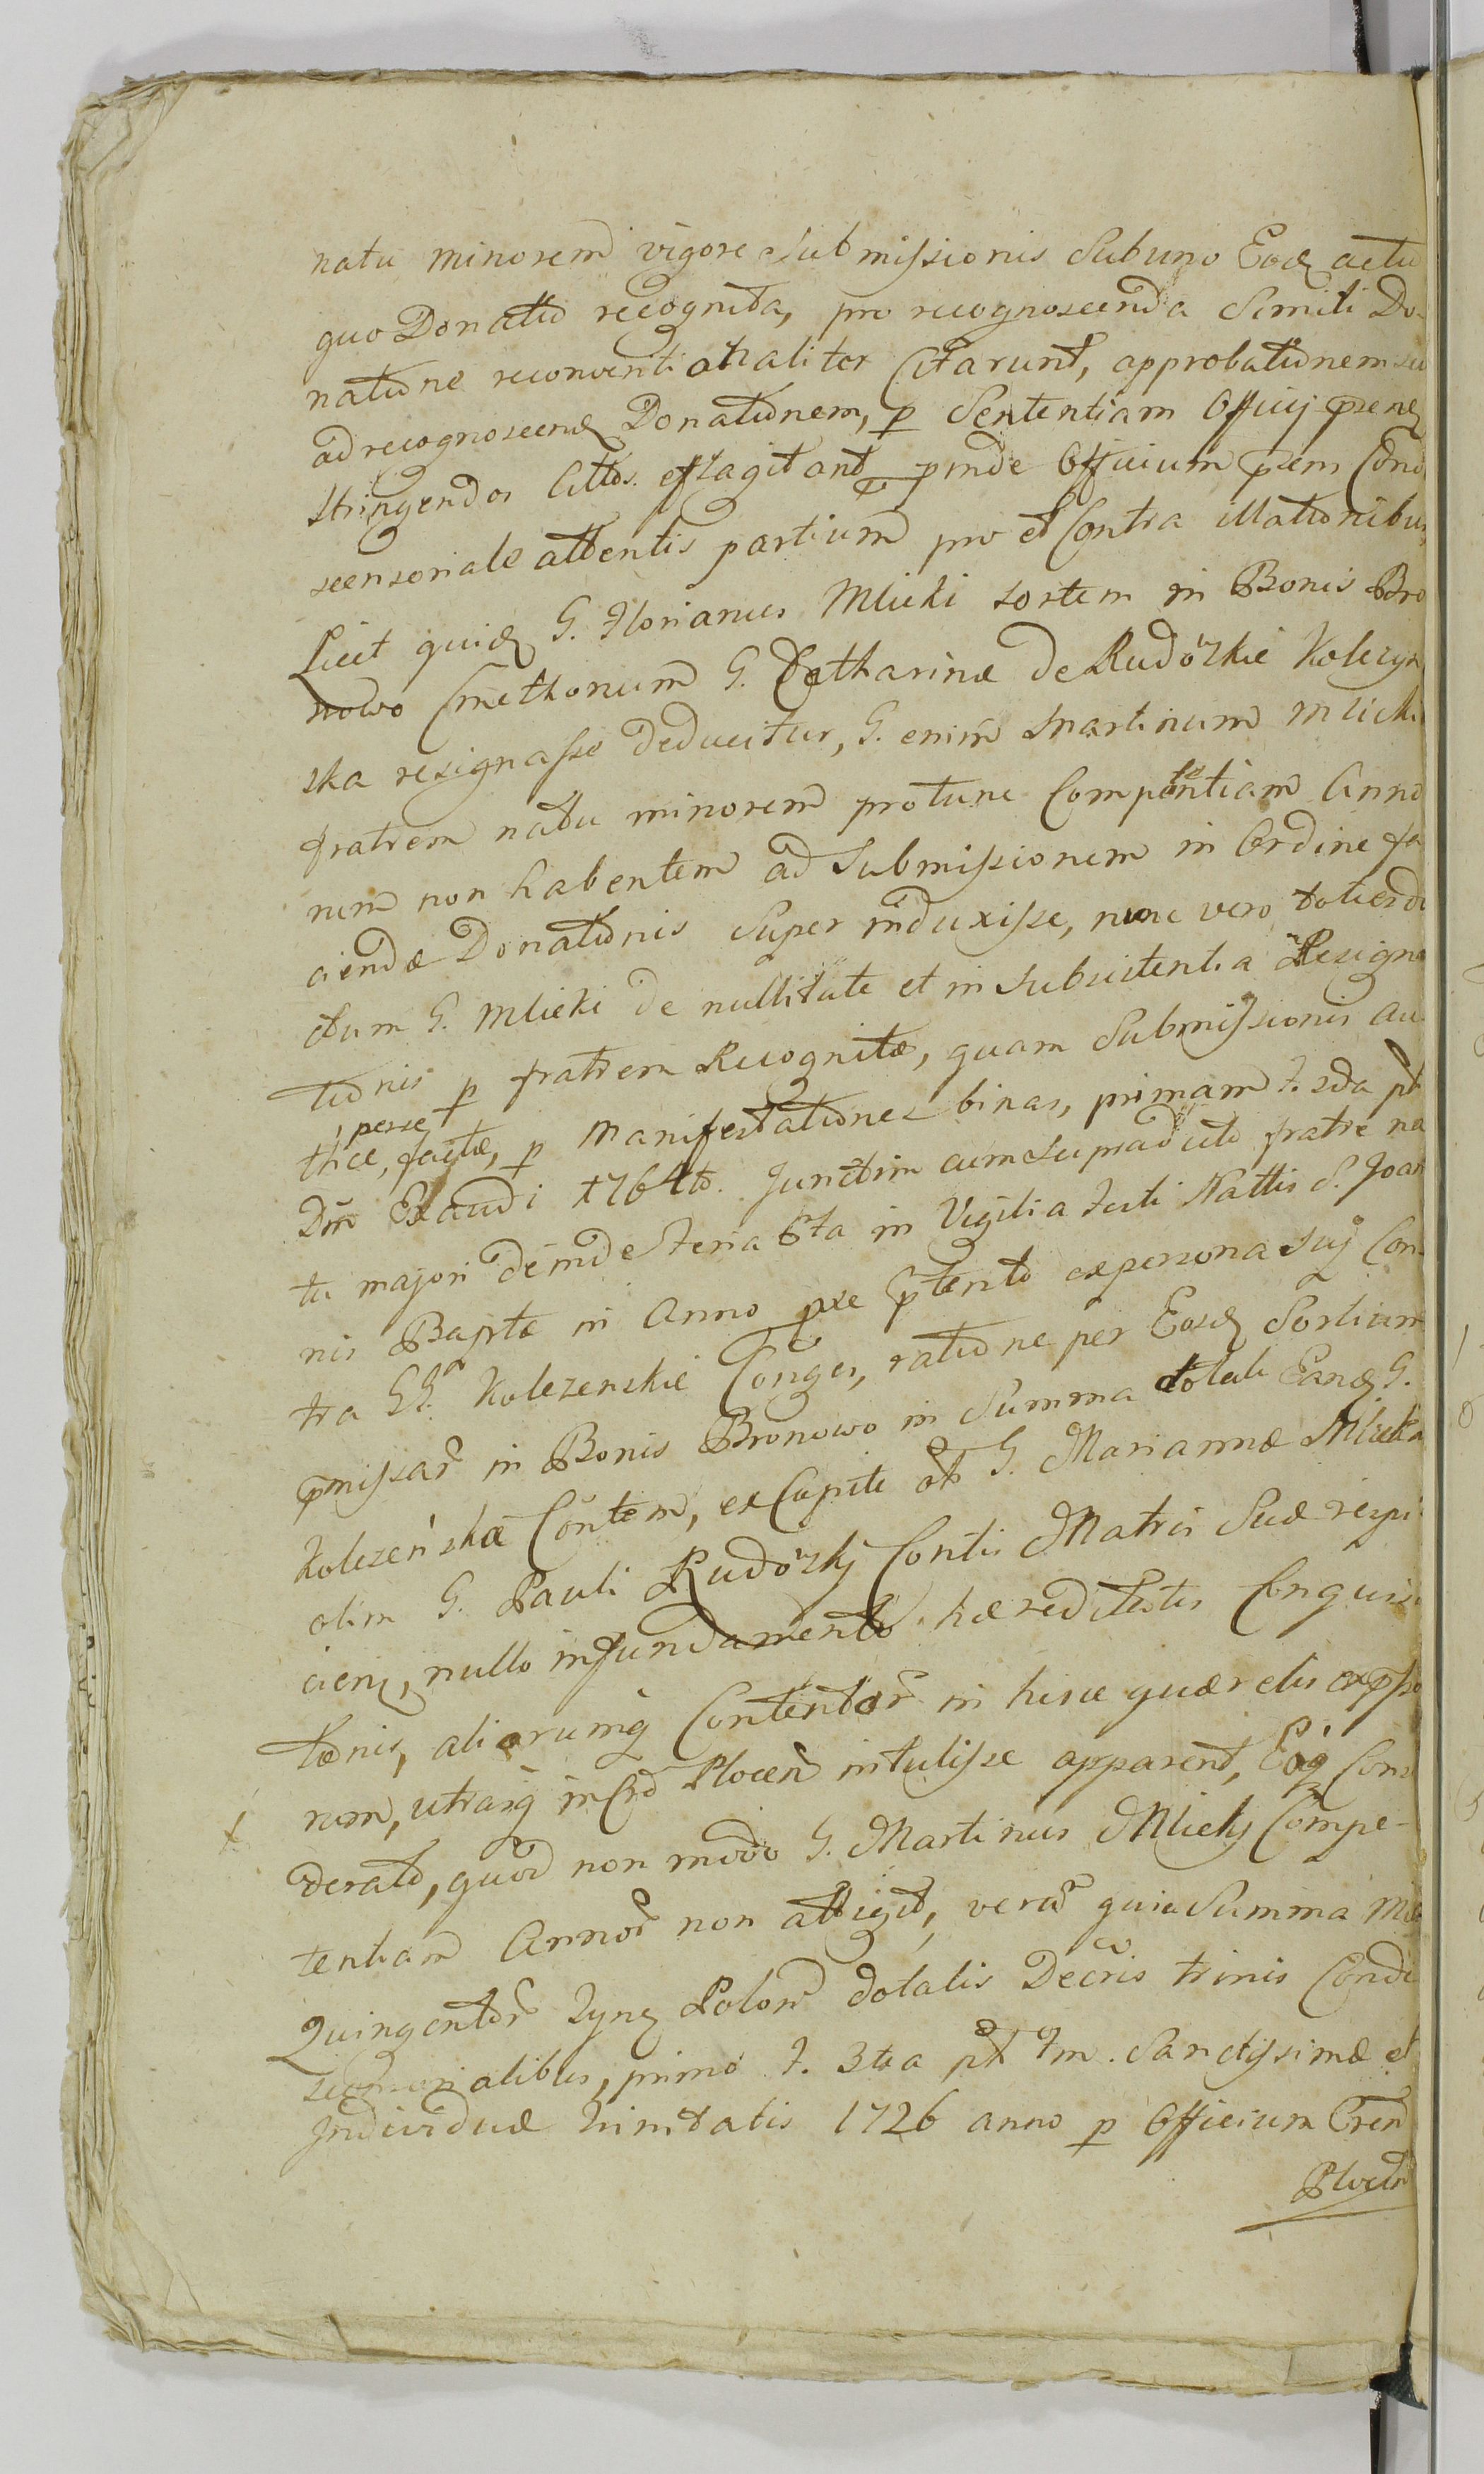 natu minorem vigore Submissionis Sub uno Eodq actu
quo Donatio recognita, pro recognoscenda Simili Do-
natione reconventionaliter Citarunt, approbationem seu
ad recognoscenq Donationem, p Sententiam Officij prenq
stringendos Cittos. efflagitant pinde Officium prens Cond
scensoriale attentis partium pro et Contra illationibus,
Licet quidq G. Florianus Mlicki sortem in Bonis Bro
nowo Cmethonum G. Catharinæ de Rudózkie Kolczyn
ska resignasse deducitur, G. enim Martinum Mlicki
fratrem natu minorem protunc Competentiam Anno
rum non habentem ad Submissionem in Ordine fa
ciendæ Donationis Super induxisse, nunc vero toties di
ctum G. Mlicki de nullitate et in subsistentia Resigna
tionis p fratrem Recognitæ, quam Submissionis au
thce, perse factæ, p Manifestationes binas, primam F. 2da pt
Dm Exaudi 1764to. Junctim cum supradicto fratre na
tu majori deinde Feria 6ta in Vigilia Festi Nattis S. Joan
nis Baptæ in Anno præ ptento ex persona suij Con
tra GG. Kolczenskie Conges, ratione per Eosdq Sortium
pmissar in Bonis Bronowo in Summa dotali Eandq G.
Kolczeńskæ Contem, ex Capite ol G. Mariannæ Mlicka
olim G. Pauli Rudózkj Contis Matris Suæ respi
cienq, nullo in fundamento hæreditatis Conquisi
tænis, aliorumq Contentor in hisce quærelis expsso
rum, utrasq in Crd Plocen intulisse apparent, Eoq Consi
derato, quod non modo G. Martinus Mlickj Compe-
tentiam Annor non attigit, verum quia Summa Mile
Quingentor Zynq Polon dotalis Decris trinis Condi
scensorialibus, primo F. 3tia pt Fm. Sanctissimæ et
Individuæ Trinitatis 1726 anno p Officium Tren
Plocen